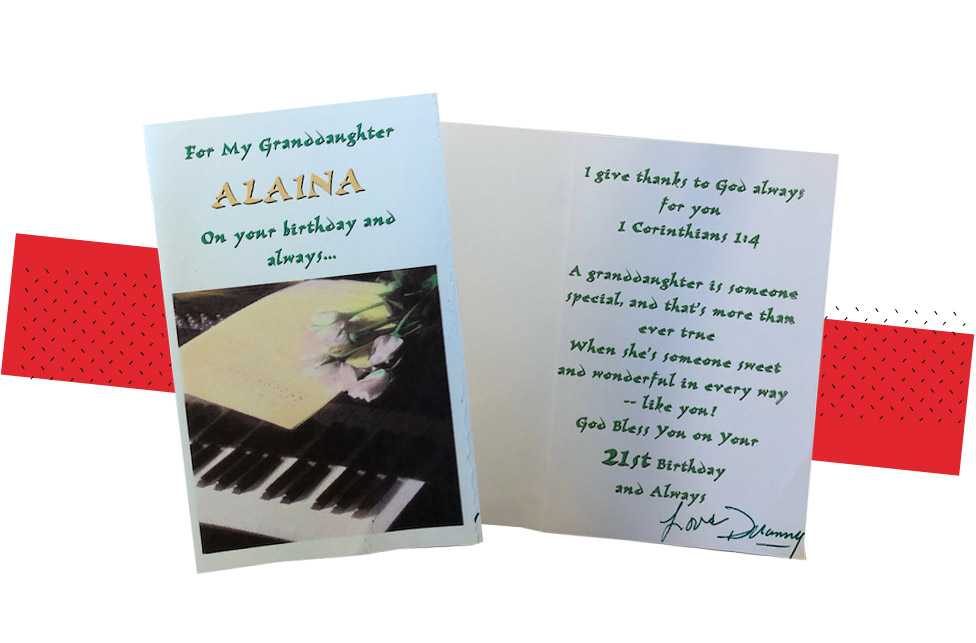 For My Granddaughter
ALAINA
On your birthday and
always...
I give thanks to God always
for you
1 Corinthians 1:4
A granddaughter is someone
special, and that's more than
ever true
When she's someone sweet
and wonderful in every way
-- like you!
God Bless You on Your
21st Birthday
and Always
Love